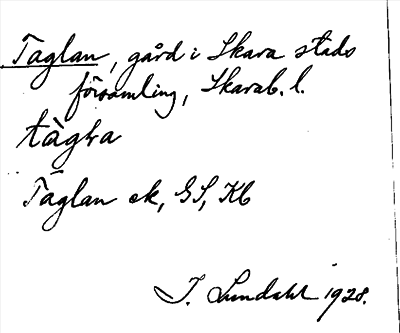 Täglan, gård i Skara stads
församling, Skarab. l.
tàgɫa
Täglan ek, GS, Kb
I. Lundahl 1928.